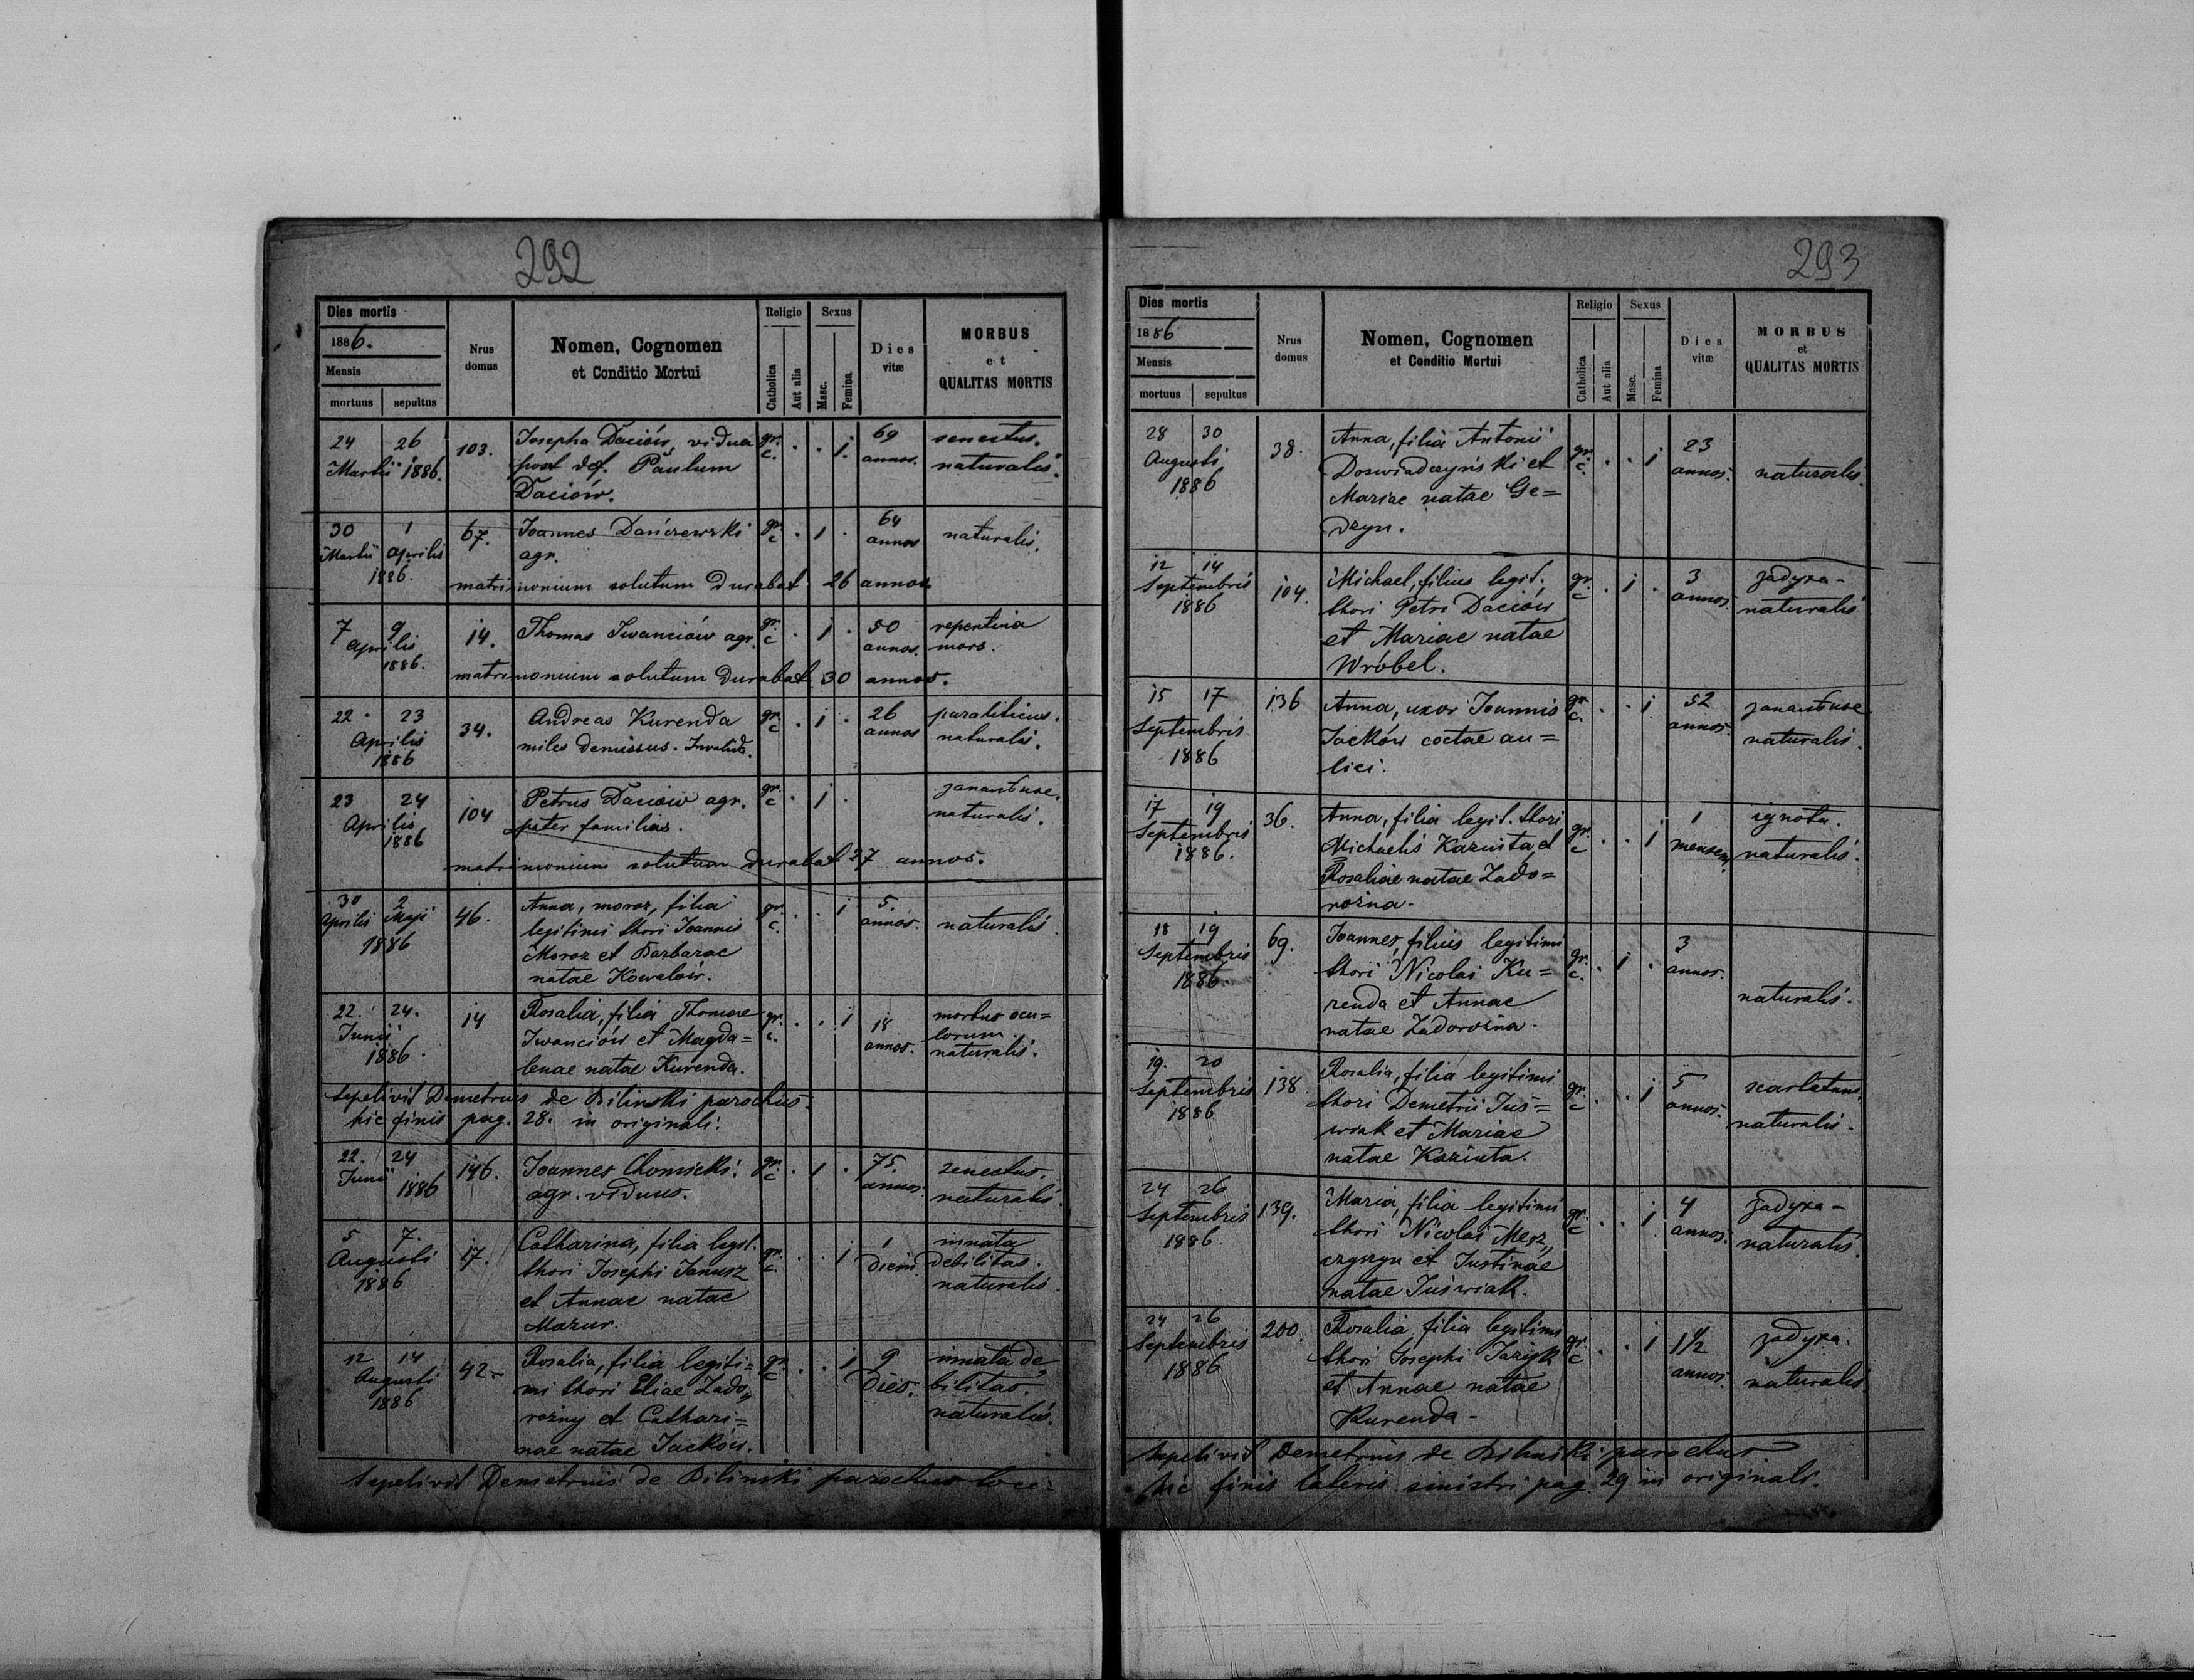 292
Dies mortis
1886.
Mensis
mortuus sepultus
Nrus domus
Nomen, Cognomen
et Conditio Mortui
Religio
Catholica
Aut alia
Sexus
Masc.
Femina
Dies vitæ
MORBUS
et
QUALITAS MORTIS
24 26 103. Josepha Daciów, vidua gr. c. . . 1. 69 senectus.
Martii 1886. post def. Paulum annos. naturalis.
Daciów.
30 1 67. Joannes Dańczewski gr. c . 1 . 64 naturalis.
Martii aprilis agr. annos
1886. matrimonium solutum durabat 26 annos.
7 9 14. Thomas Iwanciów agr. gr. c . 1 . 50 repentina
aprilis annos. mors.
1886. matrimonium solutum durabat 30 annos.
22 23 34. Andreas Kurenda gr. c . 1 . 26 paraliticus.
Aprilis miles demissus. Invalid. annos naturalis.
1886
23 24 104 Petrus Daciów agr. gr. c . 1 .
Aprilis pater familias. naturalis.
1886
matrimonium solutum durabat 27 annos.
30 2 46. Anna, moroz, filia gr. c. . . 1 5. naturalis.
Aprilis Maji legitimi thori Joannis annos.
1886 Moroz et Barbarae
natae Kowalów.
22. 24. 14 Rosalia, filia Thomae gr. c. . . 1 18 morbus ocu=
Junii Iwanciów et Magda= annos. lorum.
1886. lenae natae Kurenda. naturalis.
Sepelivit Demetrius de Bilinski parochus.
hic finis pag. 28. in originali.
22. 24 146. Joannes Chomicki. gr. c . 1 . 75. senectus.
Junii 1886 agr. viduus. annos. naturalis
5 7. 17. Catharina, filia legit. gr. c. . . 1 1 innata
Augusti thori Josephi Janusz diem debilitas.
1886 et Annae natae naturalis.
Mazur.
12 14 42. Rosalia, filia legiti= gr. c . . 1 9 innata de„
Augusti mi thori Eliae Zado„ dies. bilitas.
1886 rożny et Cathari= naturalis.
nae natae Jacków.
Sepelivit Demetrius de Bilinski parochus loci.
293
Dies mortis
1886
Mensis
mortuus sepultus
Nrus domus
Nomen, Cognomen
et Conditio Mortui
Religio
Catholica
Aut alia
Sexus
Masc.
Femina
Dies vitæ
MORBUS
et
QUALITAS MORTIS
28 30 38. Anna, filia Antonii gr. c. . . 1 23
Augusti Doswiadczyński et annos. naturalis.
1886 Mariae natae Ge=
dzyn.
12 14 104. Michael, filius legit. gr. c . 1 . 3
Septembris thori Petri Daciów annos. naturalis
1886 et Mariae natae
Wróbel.
15 17 136 Anna, uxor Joannis gr. c. . . 1 52
Septembris Jacków coctae au= annos. naturalis.
1886 lici.
17 19 36. Anna, filia legit. thori gr. c . . 1 1 ignota.
Septembris Michaelis Kaziuta et mensem naturalis.
1886. Rosaliae natae Zado=
rożna.
18 19 69. Joannes, filius legitimi gr. c. . 1 . 3
Septembris thori Nicolai Ku= annos.
1886. renda et Annae naturalis.
natae Zadorożna.
19. 20 138 Rosalia, filia legitimi gr. c . . 1 5
Septembris thori Demetrii Juś= annos.
1886 wiak et Mariae naturalis.
natae Kaziuta.
24 26 139. Maria, filia legitimi gr. c . . 1 4
Septembris thori Nicolai annos. naturalis.
1886. et Justinae
natae Juświak.
24 26 200. Rosalia, filia legitimi gr. c . . 1 1½
Septembris thori Josephi annos. naturalis
1886 et Annae natae
Kurenda.
Sepelivit Demetrius de Bilinski parochus
hic finis lateris sinistri pag. 29 in originali.